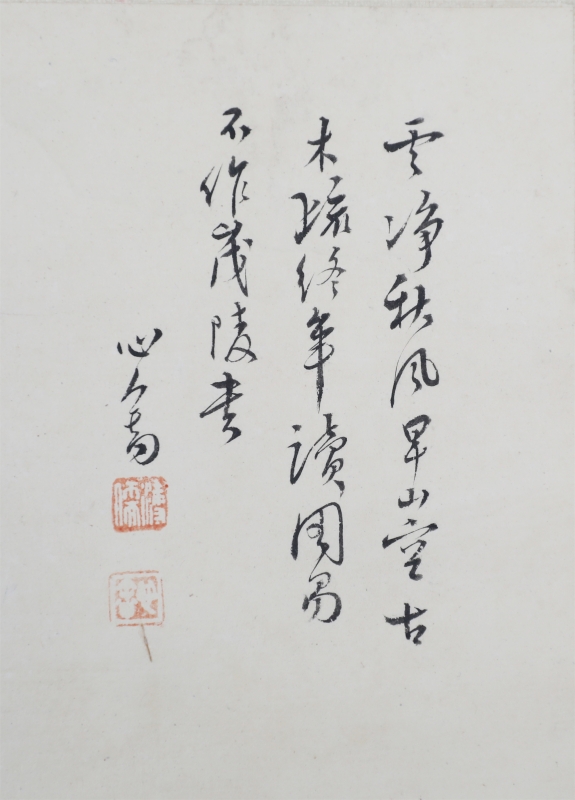 雲净秋風早山空古
木疏終年讀周易
不作茂陵書
心畬
溥儒